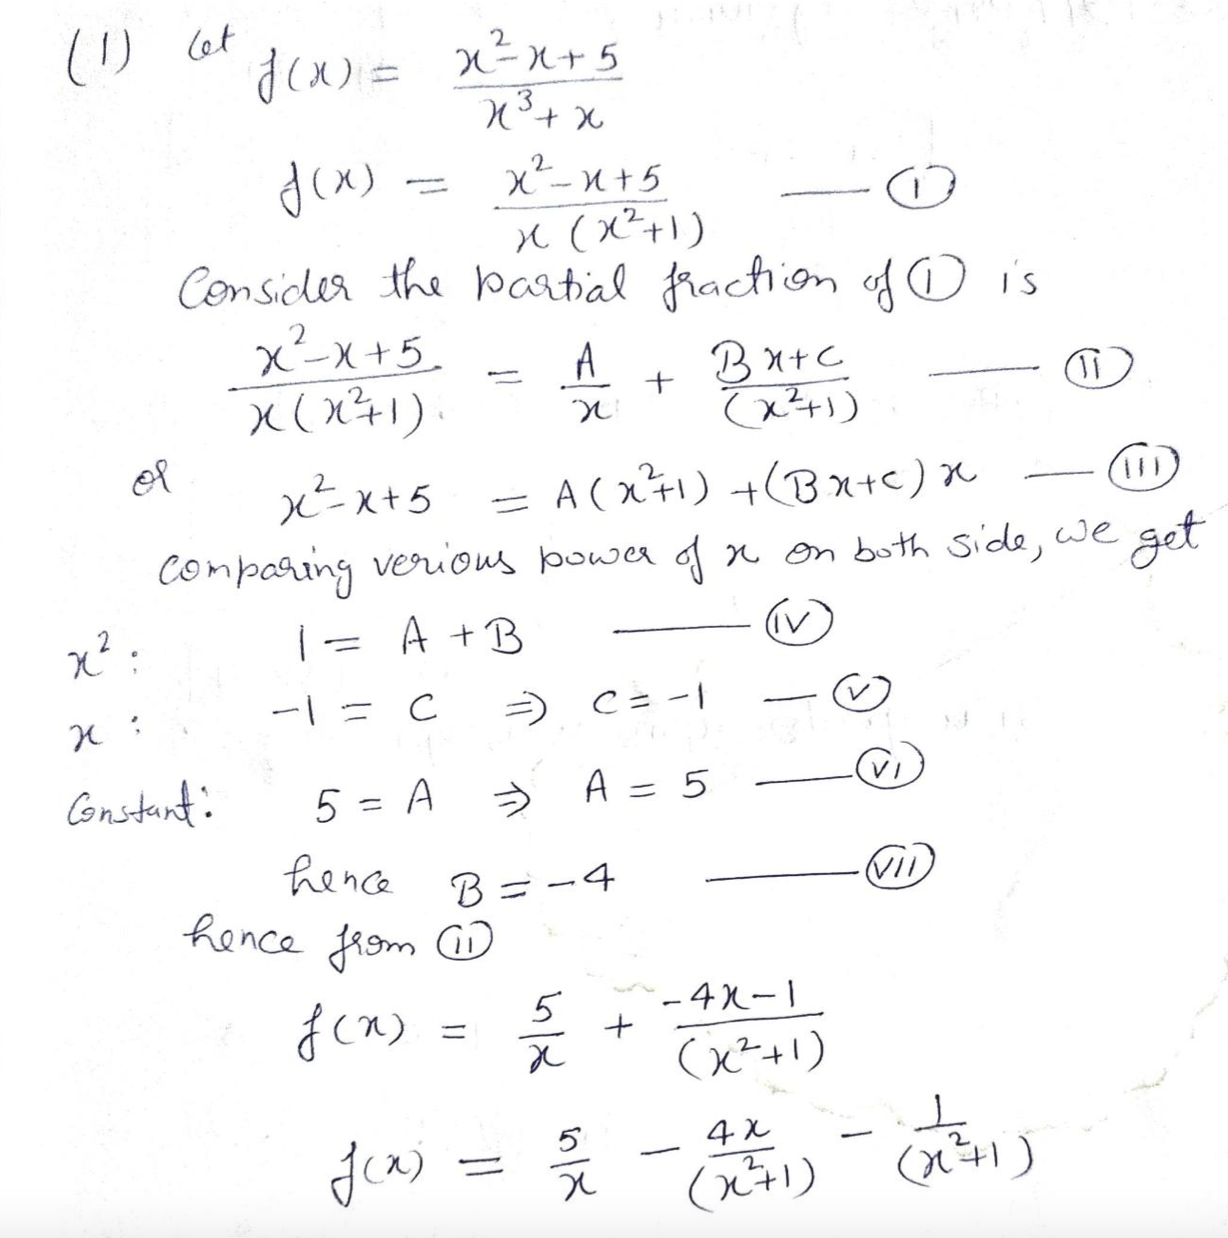 (1) Let f(x) = (x²-x+5)/(x³+x)
f(x) = (x²-x+5)/(x(x²+1)) — (i)
Consider the partial fraction of (i) is
(x²-x+5)/(x(x²+1)) = A/x + (Bx+C)/(x²+1) — (ii)
or x²-x+5 = A(x²+1) + (Bx+C)x — (iii)
comparing verious power of x on both side, we get
x²: 1 = A + B — (iv)
x: -1 = C ⇒ C = -1 — (v)
Constant: 5 = A ⇒ A = 5 — (vi)
hence B = -4 — (vii)
hence from (ii)
f(x) = 5/x + (-4x-1)/(x²+1)
f(x) = 5/x - 4x/(x²+1) - 1/(x²+1)